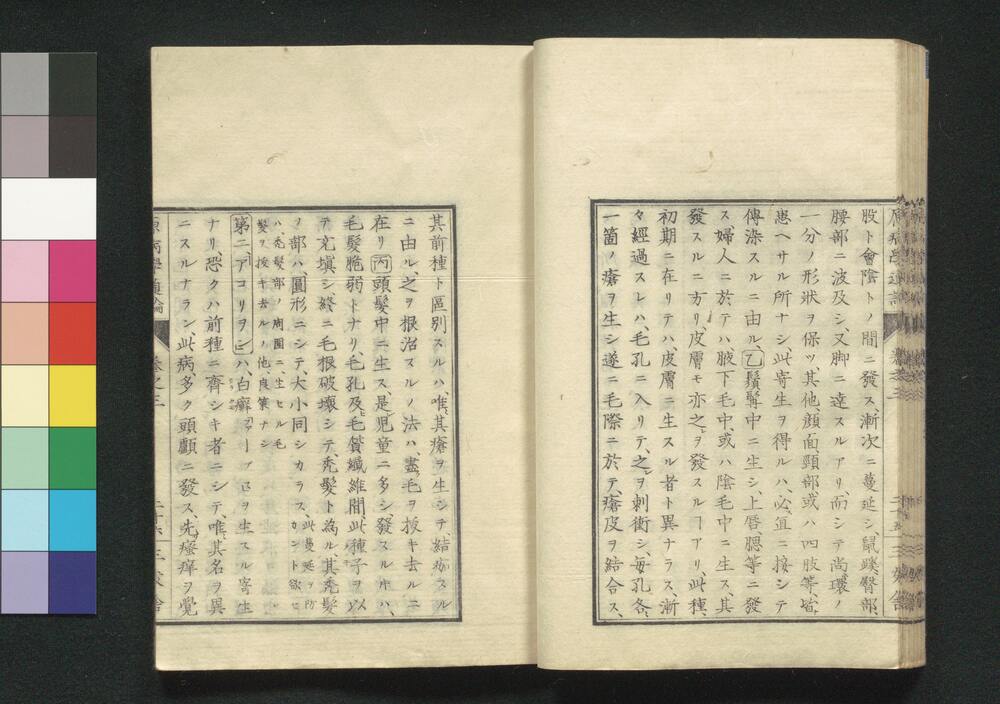 股ト會陰トノ間ニ發ス、漸次ニ蔓延シ、鼠蹊、臀部、
腰部ニ波及シ、又脚ニ達スルアリ、而シテ尚環ノ
一分ノ形狀ヲ保ツ、其他、顔面、頸部或ハ四肢等、皆、
患ヘサル所ナシ、此寄生ヲ得ルハ、必、直ニ接シテ
傳染スルニ由ル、乙鬚髯中ニ生シ、上唇、腮等ニ發
ス、婦人ニ於テハ腋下毛中、或ハ陰毛中ニ生ス、其
發スルニ方リ、皮膚モ亦之ヲ發スルヿアリ、此種、
初期ニ在リテハ皮膚ニ生スル者ト異ナラス、漸
々經過スレハ、毛孔ニ入リテ、之ヲ刺衝シ、毎孔各、
一箇ノ瘡ヲ生シ、遂ニ毛際ニ於テ、瘡皮ヲ結合ス、
其前種ト區別スルハ、唯、其瘡ヲ生シテ、結痂スル
ニ由ル、之ヲ根治スルノ法ハ、盡毛ヲ抜キ去ルニ
在リ丙頭髮中ニ生ス、是、児童ニ多シ、發スル片ハ、
毛髮脆弱トナリ、毛孔及毛質纖維間、此種子ヲ以
テ充塡シ、終ニ毛根破壞シテ、禿髮ト為ル、其禿髮
ノ部ハ、圓形ニシテ、大小同シカラス、此蔓延ヲ防カント欲セ
ハ、禿髮部ノ周圍ニ、生セル毛髮ヲ抜キ去ルノ他、良策ナシ
第二アコリヲンハ、白癬ヲ生スル寄生
ナリ、恐クハ前種ニ齊シキ者ニシテ、唯、其名ヲ異
ニスルナラン、此病、多ク頭顱ニ發ス、先瘙痒ヲ覺